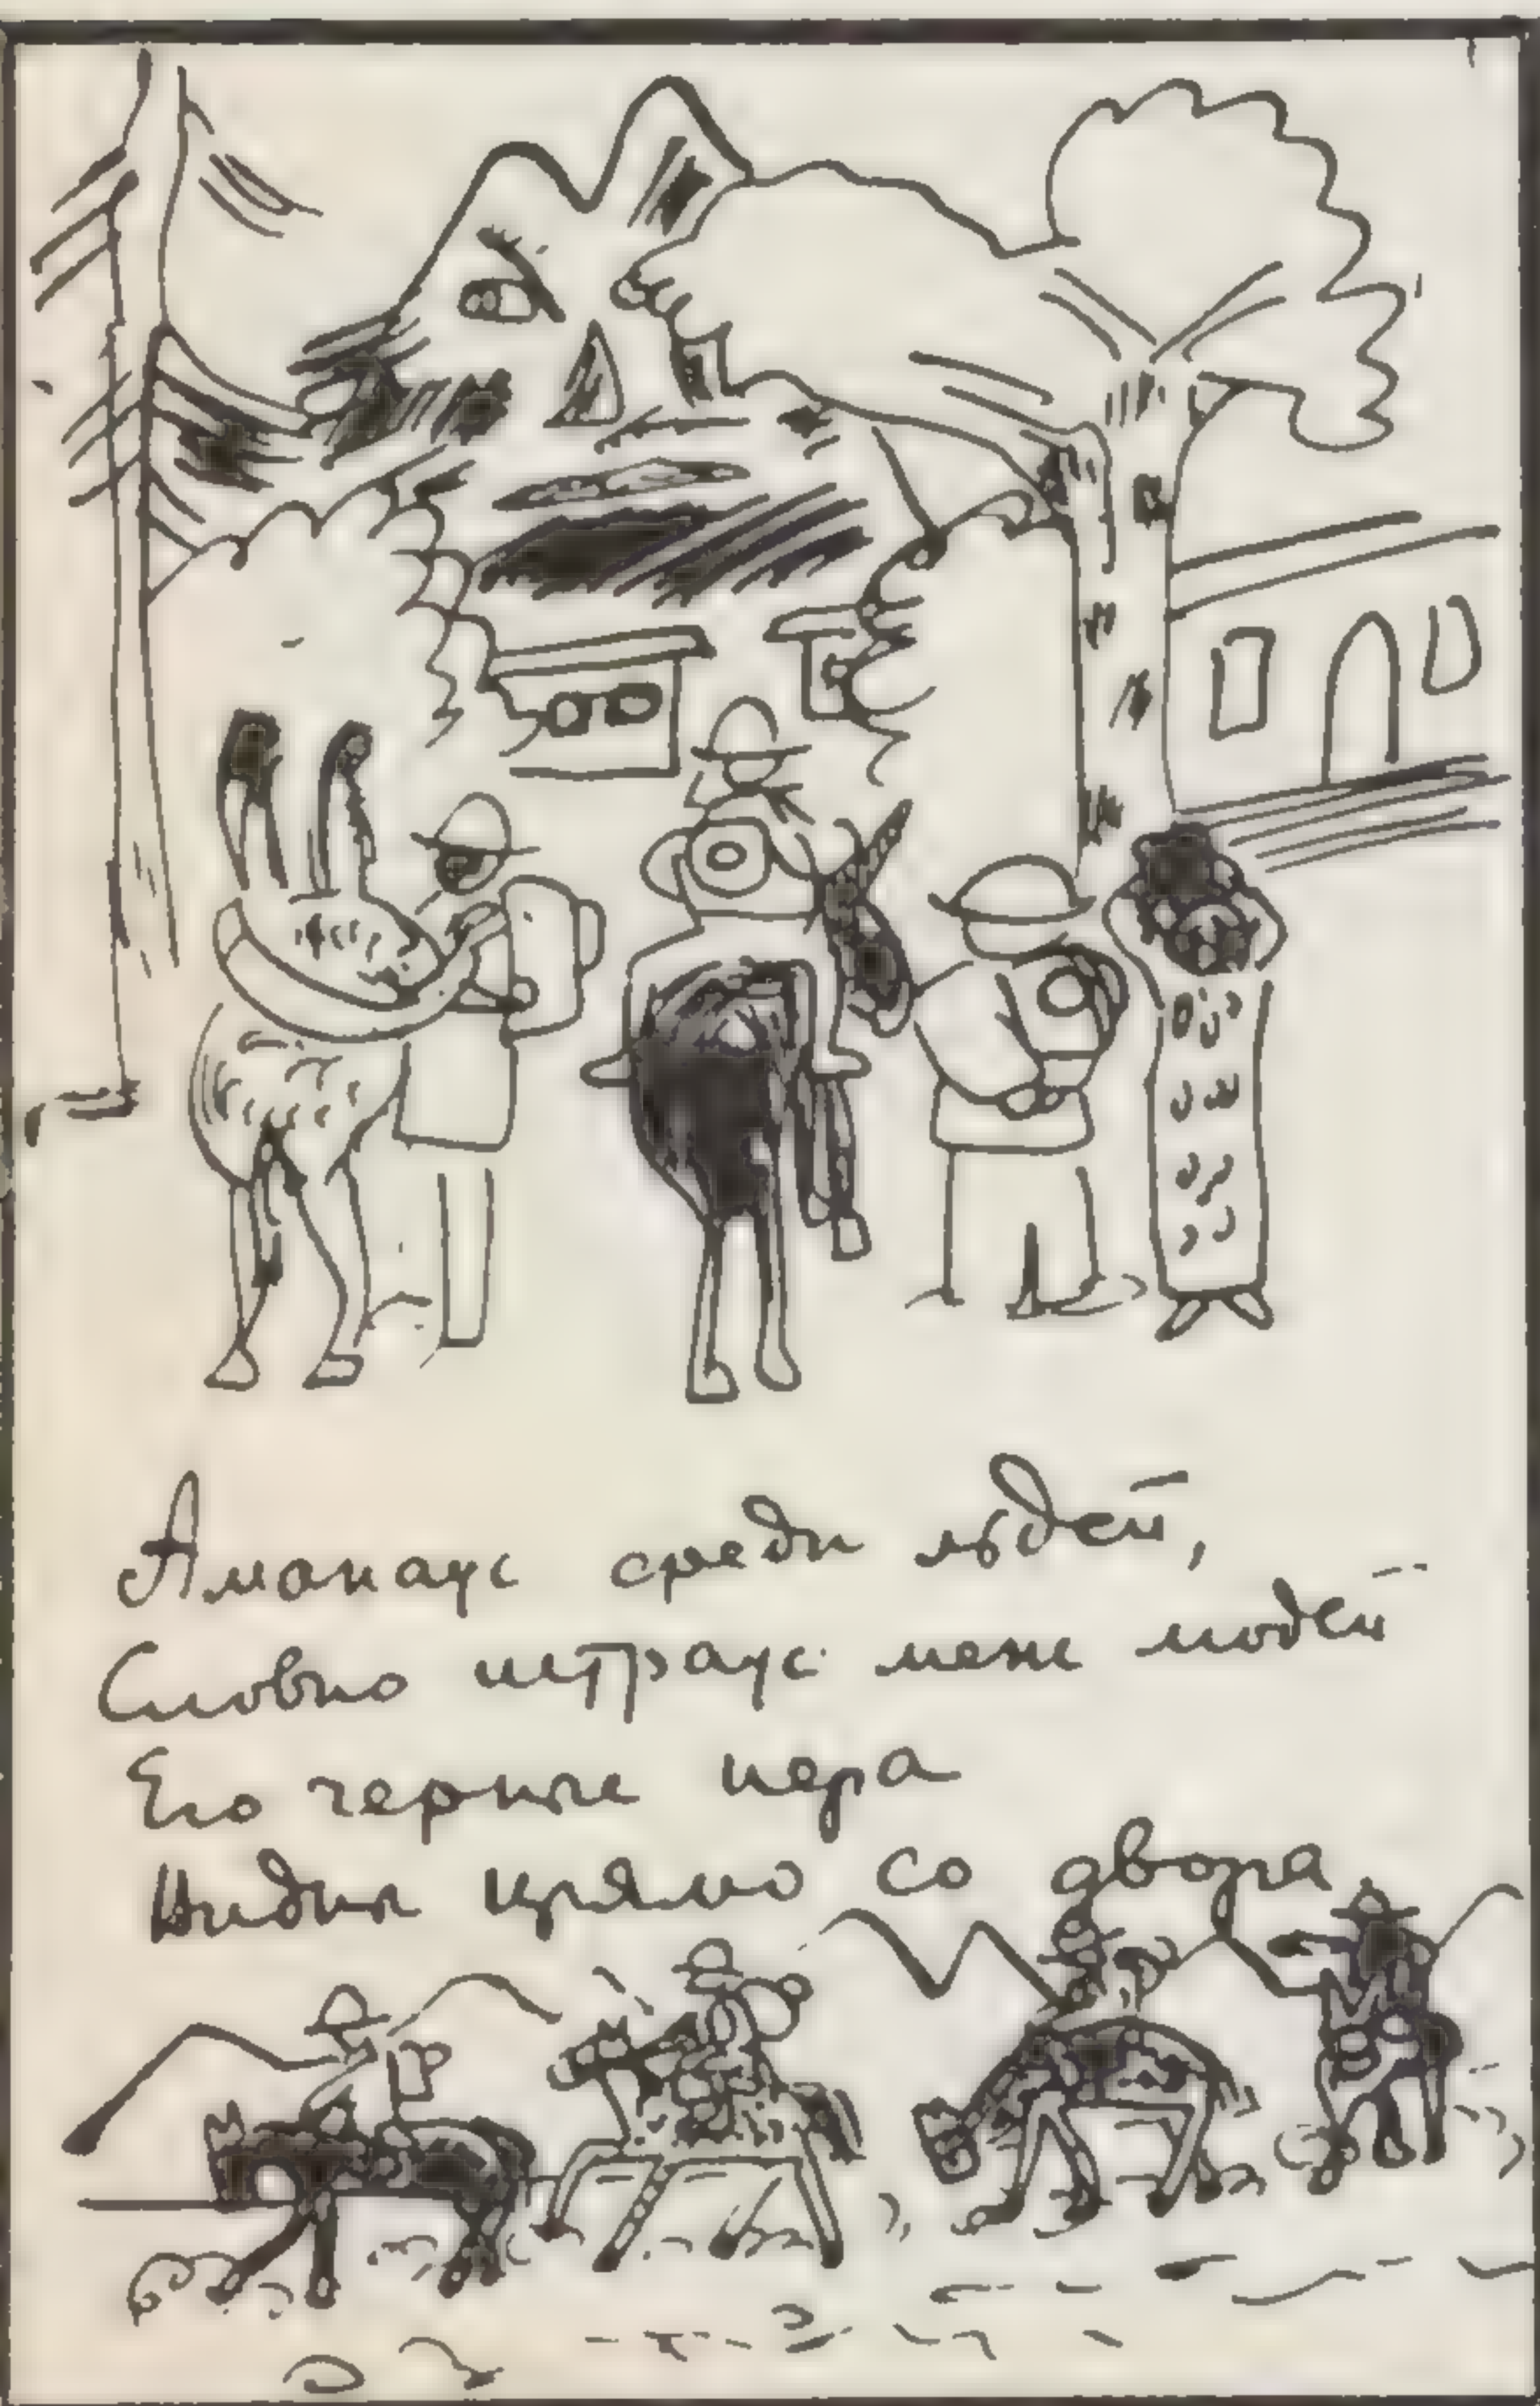 Аманаус среди льдей,
Словно штраус меж людей
Его черные пера
Видны прямо со двора